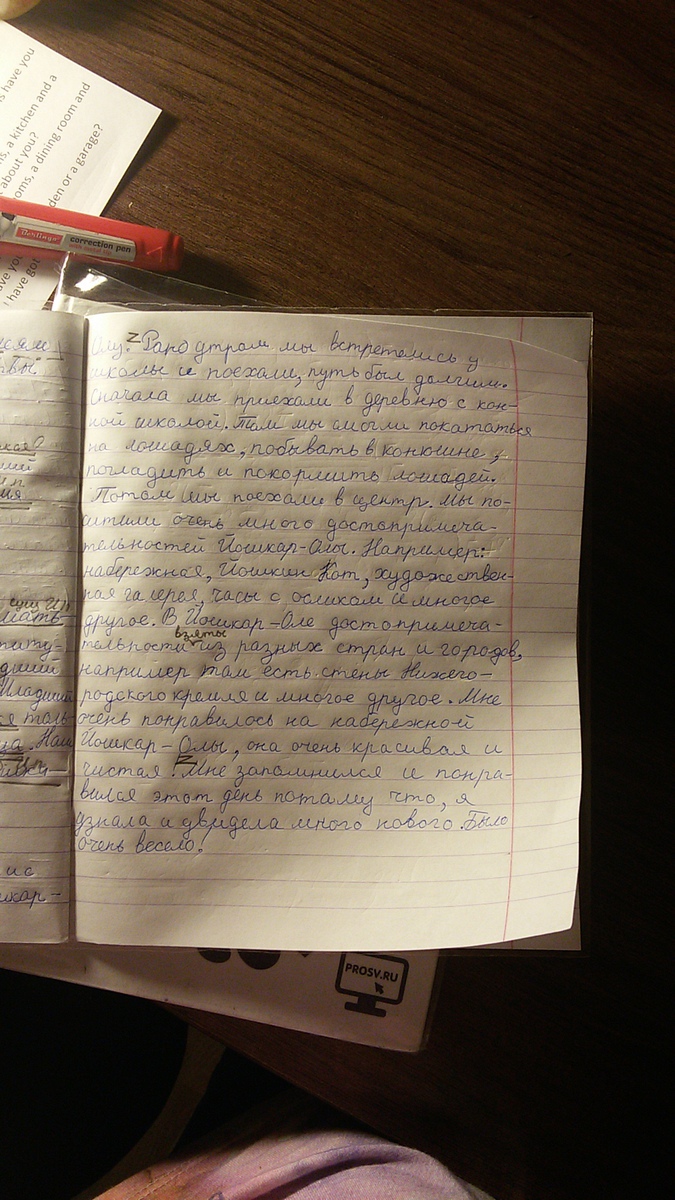 s have you
ns, a kitchen and a
about you?
oms, a dining room and
den or a garage?
have you
I have got
Berlingo
correction pen
with metal tip
Олу. Z Рано утром мы встретелись у
школы и поехали, путь был долгим.
Сначала мы приехали в деревню с кон-
ной школой. Там мы смогли покататься
на лошадях, побывать в конюшне,
погладить и покормить лошадей.
Потом мы поехали в центр. Мы по-
сетили очень много достопримеча-
тельностей Йошкар-Олы. Например:
набережная, Йошкин Кот, художествен-
ная галерея, часы с осликом и многое
другое. В Йошкар-Оле достопримеча-
взяты
тельности из разных стран и городов,
например там есть стены Нижего-
родского кремля и многое другое. Мне
очень понравилось на набережной
Йошкар-Олы, она очень красивая и
чистая. Z Мне запомнился и понра-
вился этот день потому что, я
узнала и увидела много нового. Было
очень весело!
сущ И.п
мать
ладший
Младший
Наш
ис
шкар-
PROSV.RU